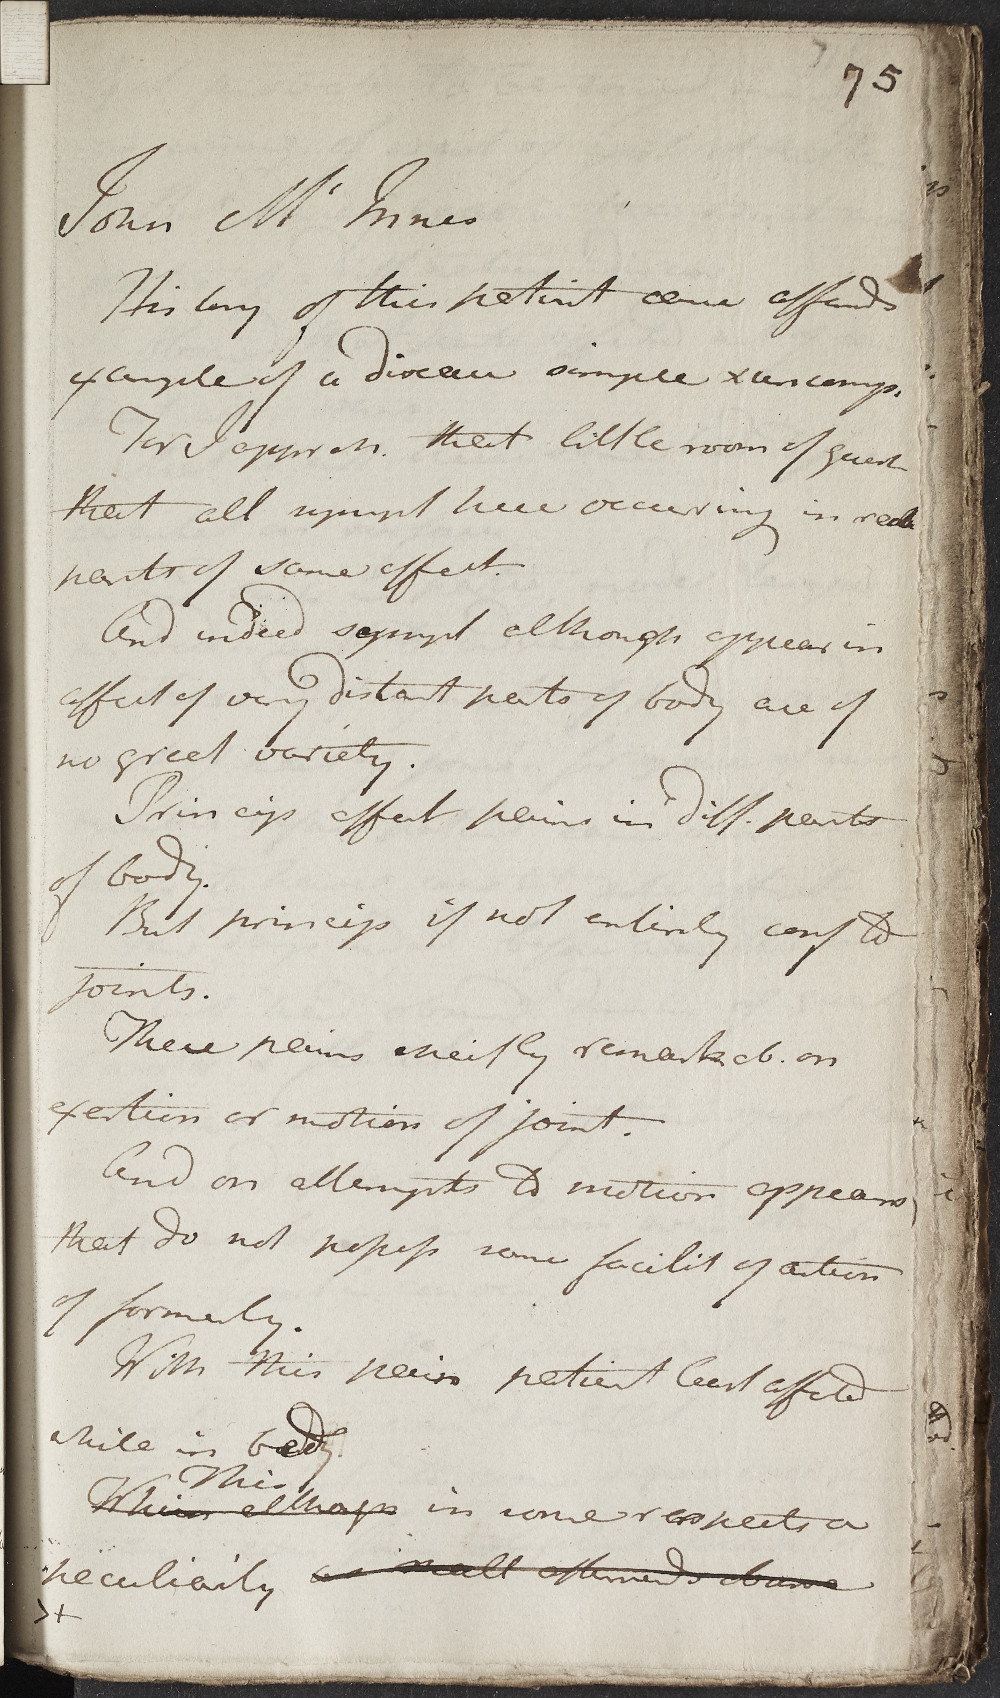 75
John McInnes
History of this patient case affords
example of a disease simple & uncomp.
For I appreh. that little room of quest
that all sympt here occurring in real
parts of same affect.
And indeed sympt although appear in
affect of very distant parts of body are of
no great variety.
Princip affect pains in diff. parts
of body.
But princip if not entirely conf to
joints.
These pains cheifly remarkab. on
exertion or motion of joint.
And on attempts to motion appears
that do not possess same facilit of action
of formerly.
With this pain patient least affected
while in bed
This
Which although in some respects a
peculiarity as shall afterwards observe